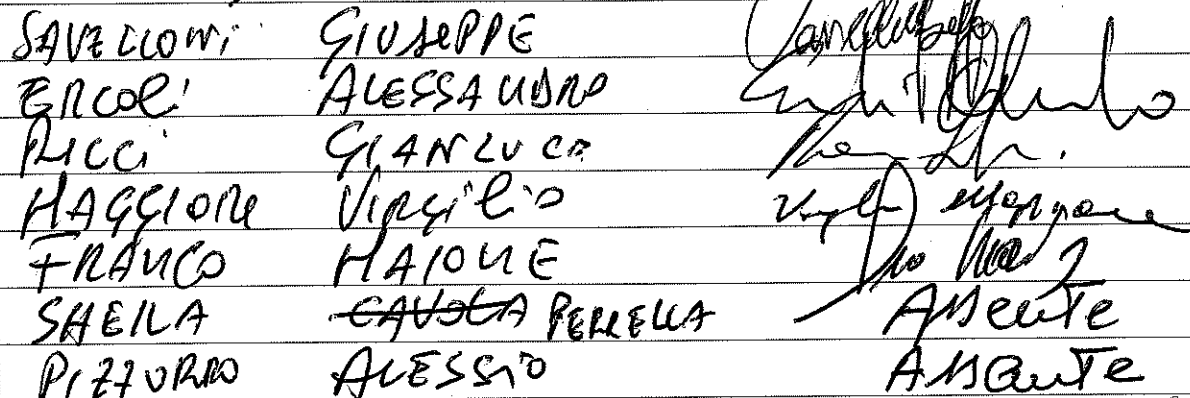 SAVELLONI GIUSEPPE
ERCOLI ALESSANDRO
RICCI GIANLUCA
MAGGIORE VIRGILIO Virgilio Maggiore
FRANCO MAIONE
SHEILA CAVOLA PERRELLA Assente
PIZZURRO ALESSIO Assente